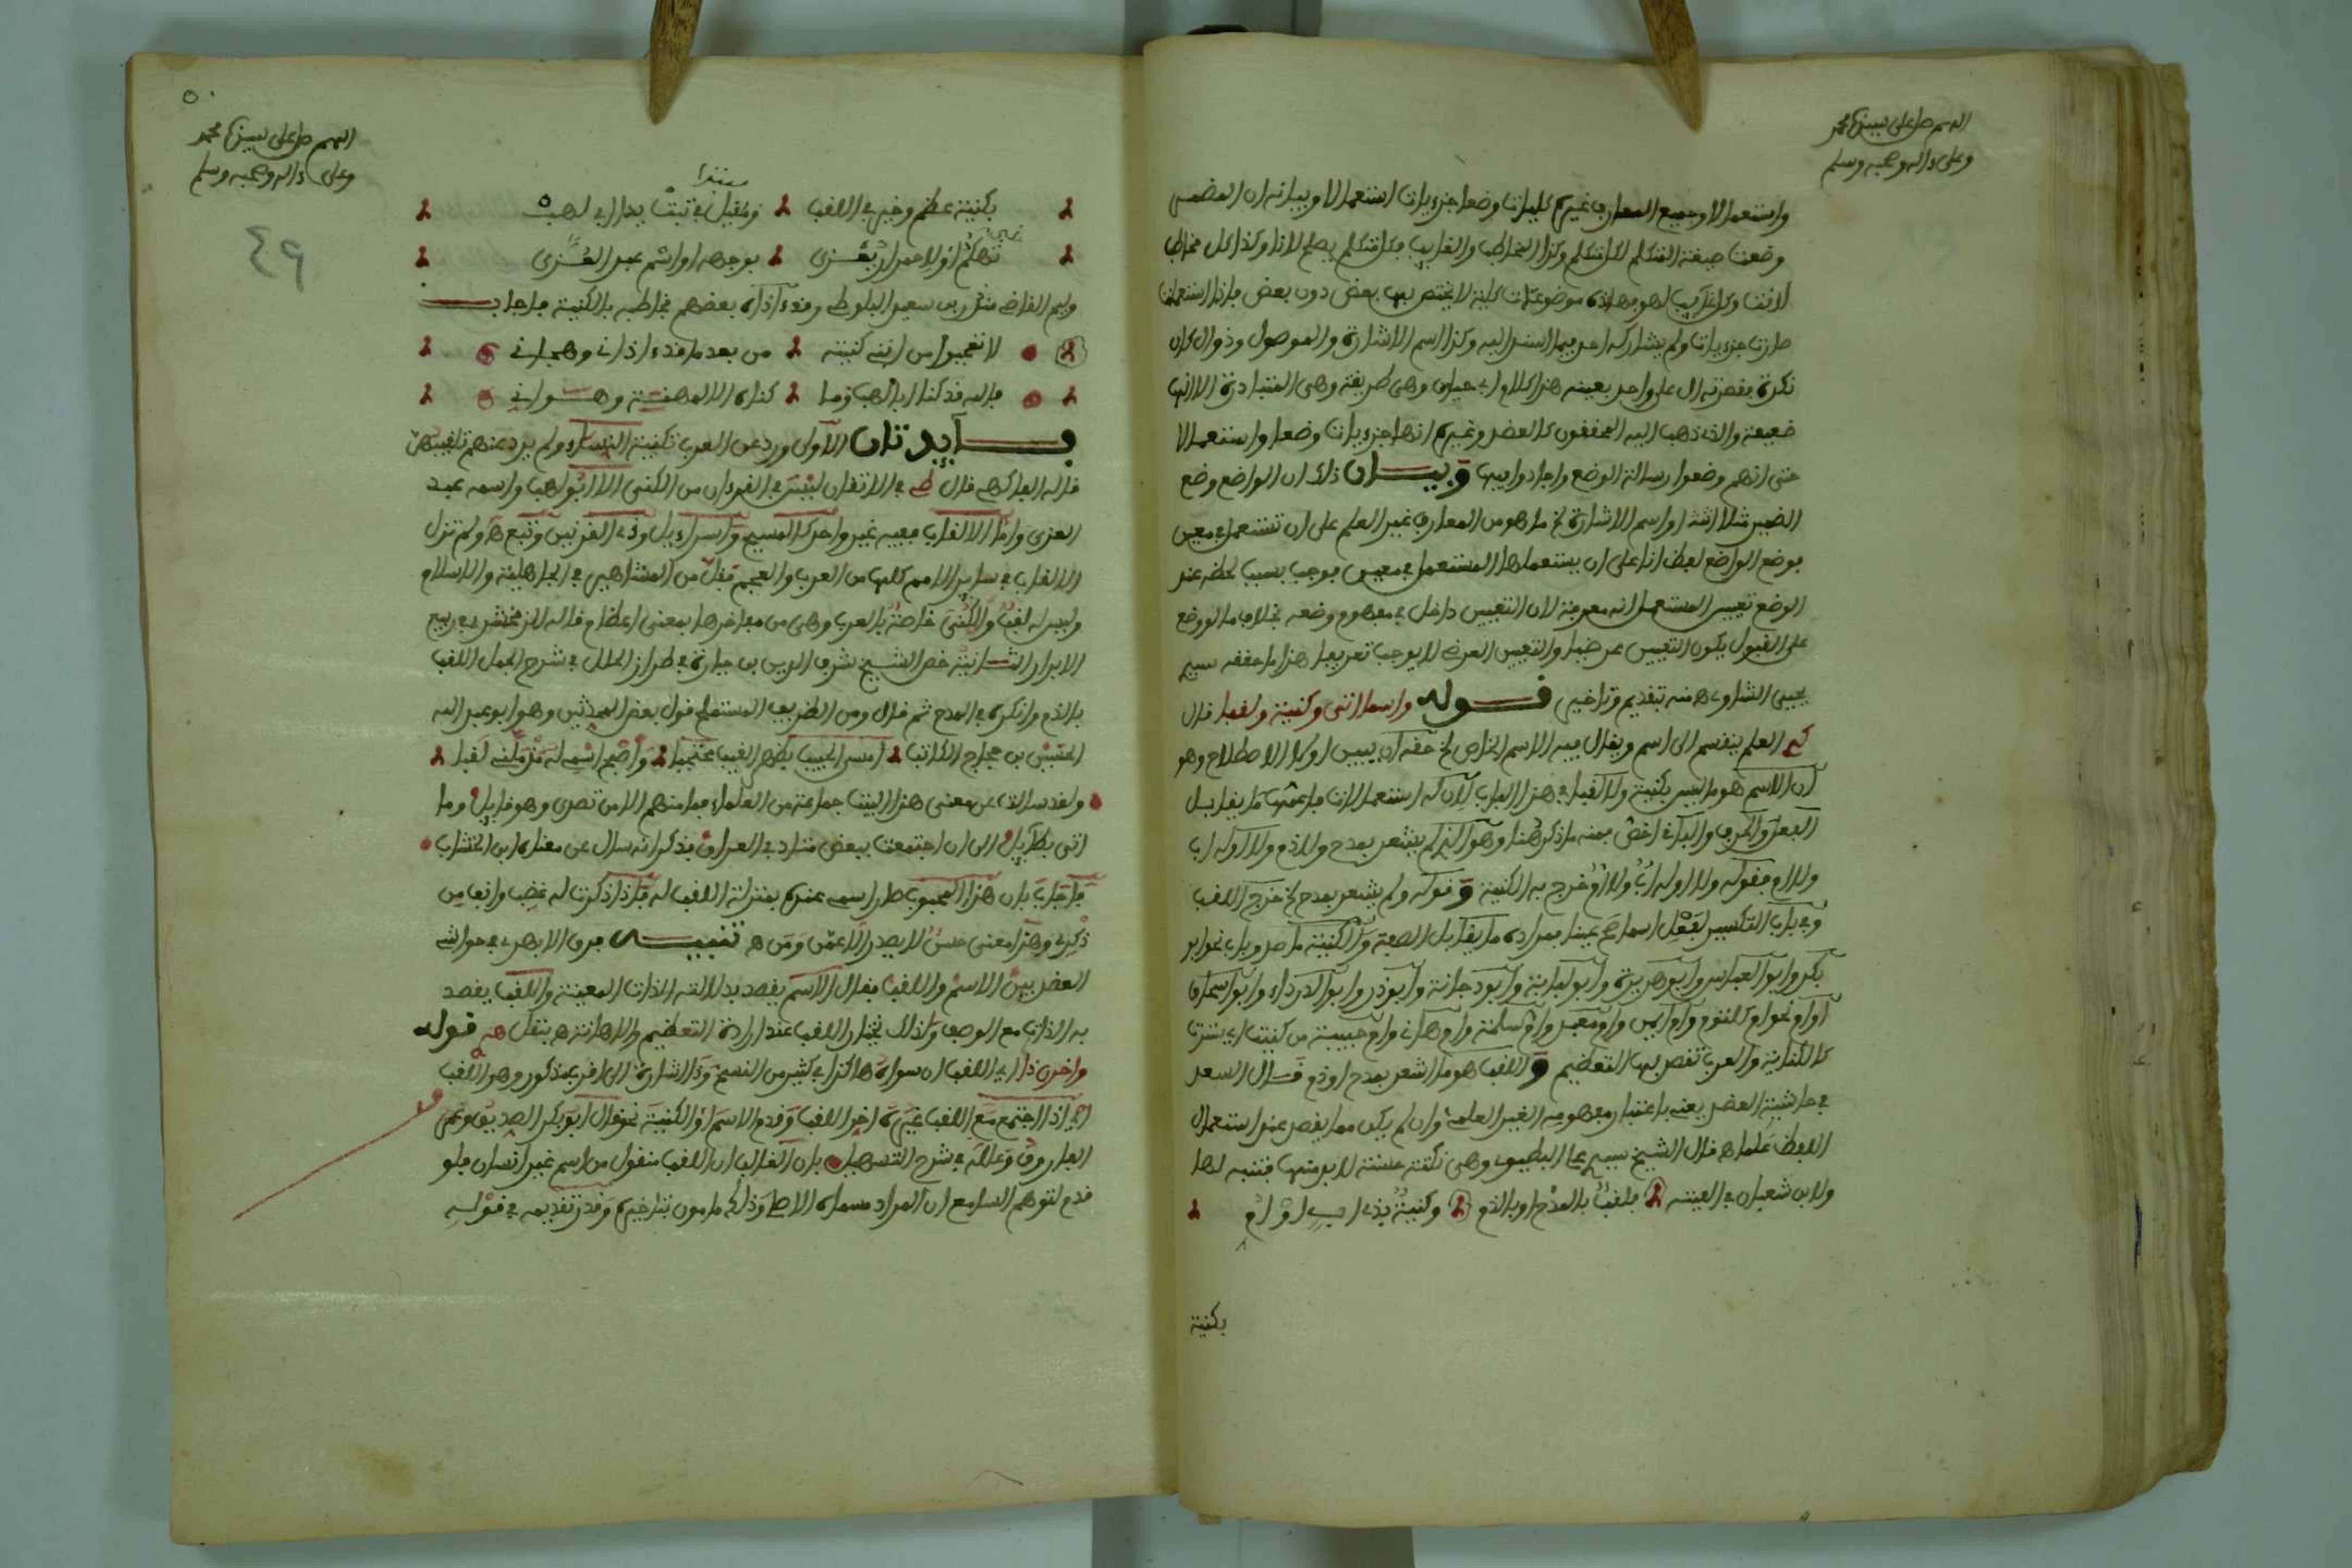 اللهم صل على سيدنا محمد
وعلى ءاله وصحبه وسلم
واستعمالا وجميع المعارف غيره كليات وضعا جزءيات استعمالا وبيانه ان المضمر
وضعت صيغة المتكلم لكل متكلم وكذا المخاطب والغايب فكل متكلم يصلح لانا وكذا كل مخاطب
لانت وكل غايب لهو فهاذه موضوعات كلية لا يختص بها بعض دون بعض فاذا استعملت
صارت جزءيات ولم يشاركه احد فيما اسند اليه وكذا اسم الاشارة والموصول وذو ال كان
نكرة فقصرته ال على واحد بعينه هذا كلام ابي حيان وهي طريقة وهي المتبادرة الا انها
ضعيفة والذي ذهب اليه المحققون كالعضد وغيره انها جزءيات وضعا واستعمالا
حتى انهم وضعوا رسالة الوضع واجادوا فيها وبيان ذلك ان الواضع وضع
الضمير مثلا انت او اسم الاشارة الخ ما هو من المعارف غير العلم على ان تستعمل في معين
فوضع الواضع لفظ انا على ان يستعملها المستعمل في معين فوجب بسبب لحظه عند
الوضع تعيين المستعمل انه معرفة لان التعيين داخل في مفهوم وضعه بخلاف ما لو وضع
على القبول يكون التعيين عرضيا والتعيين العرضي لا يوجب تعريفا هذا ما حققه سيدي
يحيى الشاوي ه منه بتقديم وتاخير قوله واسما اتى وكنية ولقبا قال
العلم ينقسم الى اسم ويقال فيه الاسم الخاص الخ حقه ان يبين اولا الاصطلاح وهو
ان الاسم هو ما ليس بكنية ولا لقبا في هذا الباب لان له استعمالات فاعمها ما يقابل
الفعل والحرف والباقي اخص فمنه ما ذكر هنا وهو الذي لم يشعر بمدح ولا ذم ولا اوله اب
ولا ام فقوله ولا اوله اب ولا ام خرج به الكنية وقوله ولم يشعر بمدح الخ خرج اللقب
وفي باب التكسير لفعل اسما صح عينا فمراده ما يقابل الصفة والكنية ما صدر باب نحو ابو
بكر وابو العباس وابو هريرة وابو لبابة وابو دجانة وابو ذر وابو الدرداء وابو اسحاق
او ام نحو ام كلثوم وام ايمن وام معبد وام سلمة وام هانئ وام حبيبة من كنيت اي سترت
كالكناية والعرب تقصد بها التعظيم واللقب هو ما اشعر بمدح او ذم قال السعد
في حاشية العضد يعني باعتبار مفهومه الغير العلمي وان لم يكن مما يقصد عند استعمال
اللفظ علما ه قال الشيخ سيدي الطيب وهي نكتة حسنة لا بد منها فتنبه لها
ولابن شعبان في الفيته فلقب بالمدح او بالذم وكنية بذي اب او ام
بكنية
٥٠
اللهم صل على سيدنا محمد
وعلى ءاله وصحبه وسلم
٤٩
مبتدا
بكنية عظم وخير في اللقب وقيل في تبت يدا ابي لهب
تهكم او لاحمرار يعزى بوجهه او اسم عبد العزى
ولم القاضي منذر بن سعيد البلوطي وقد ءاذاه بعضهم مخاطبه بالكنية فاجاب
لا تعجبوا من انني كنيته من بعد ما قد ءاذاني وهجاني
فالله قد كنا ابا لهب وما كناه الا لمهنة وهوان
فايدتان الاولى ورد عن العرب تكنية النساء ولم يرد عنهم تلقيبهن
قاله الفاكهي قال في الاتقان ليس في القرءان من الكنى الا ابو لهب واسمه عبد
العزى واما الالقاب ففيه غير واحد كالمسيح واسراءيل وذي القرنين وتبع ه ولم تزل
الالقاب في ساير الامم كلها من العرب والعجم فقل من المشاهير في الجاهلية والاسلام
وليس له لقب والكنى خاصة بالعرب وهي من مفاخرها بمعنى اعظام قاله الزمخشري في ربيع
الابرار الثانية خص الشيخ شرف الدين بن جبارة في طراز الحلل في شرح الجمل اللقب
بالذم وانكره في المدح ثم قال ومن الظريف المستملح قول بعض المحدثين وهو ابو عبد الله
الحسين بن حجاج الكاتب امسى الحبيب يظهر الغيب محتجبا واصبح اسمه له من ملته لقبا
ولقد سالت عن معنى هذا البيت جماعة من العلماء فما منهم الا من تصدى وهو قايل وما
اتى بطايل الى ان اجتمعت ببعض متادبي العراق فذكر انه سال عن معناه ابن الخشاب
فاجاب بان هذا المحبوب صار اسمي عنده بمنزلة اللقب له فاذا ذكرت له غضب وانف من
ذكري وهذا معنى حسن لا يصدر الا عمن ومن ه تنبيه فرق الابهري في حواشي
العضد بين الاسم واللقب فقال الاسم يقصد بدلالته الذات المعينة واللقب يقصد
به الذات مع الوصف ولذلك يختار اللقب عند ارادة التعظيم والاهانة ه بنقل ه قوله
واخرن ذا اي اللقب ان سواه هاكذا في كثير من النسخ وذا اشارة الى اقرب مذكور وهو اللقب
اي اذا اجتمع مع اللقب غيره اخر اللقب وقدم الاسم او الكنية نحو قال ابو بكر الصديق وعمر
الفاروق وعلله في شرح التسهيل بان الغالب ان اللقب منقول من اسم غير انسان فلو
قدم لتوهم السامع ان المراد مسماه الاصلي وذلك مامون بتاخيره وقدر تقديمه في قوله